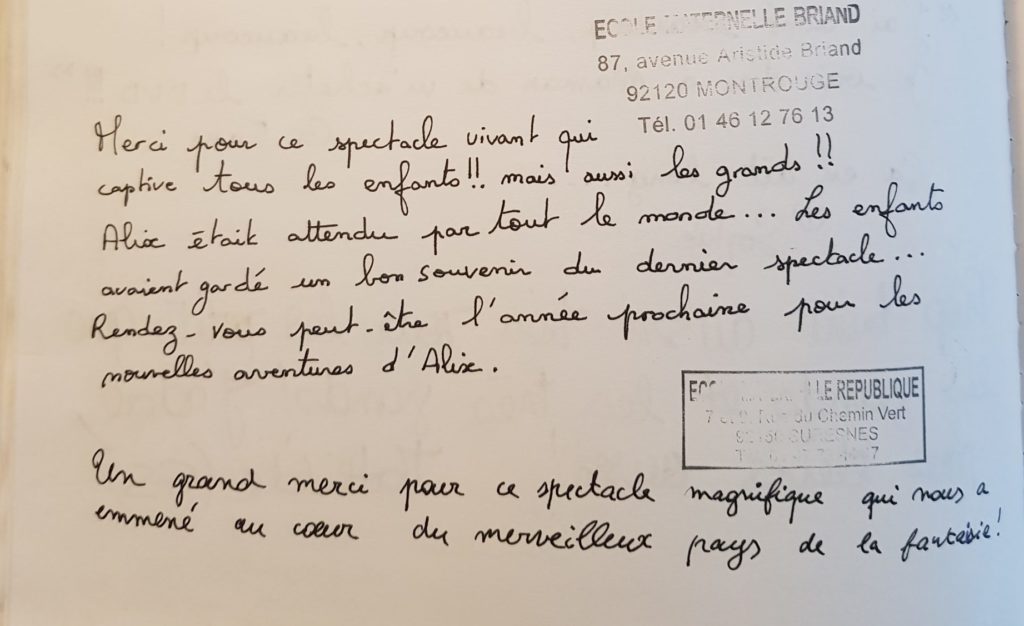 ECOLE MATERNELLE BRIAND
87, avenue Aristide Briand
92120 MONTROUGE
Tél. 01 46 12 76 13
Merci pour ce spectacle vivant qui
captive tous les enfants!!. mais aussi les grands!!
Alix était attendu par tout le monde... Les enfants
avaient gardé un bon souvenir du dernier spectacle...
Rendez-vous peut-être l'année prochaine pour les
nouvelles aventures d'Alix.
LE REPUBLIQUE
Rue du Chemin Vert
SURESNES
Un grand merci pour ce spectacle magnifique qui nous a
emmené au cœur du merveilleux pays de la fantaisie!